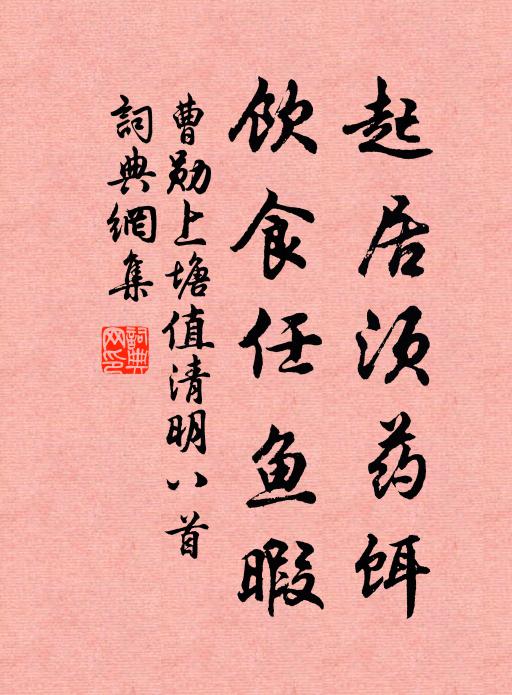 起居须药饵
饮食任鱼暇
曹勋上塘值清明八首
詞典網集
詞典
网印